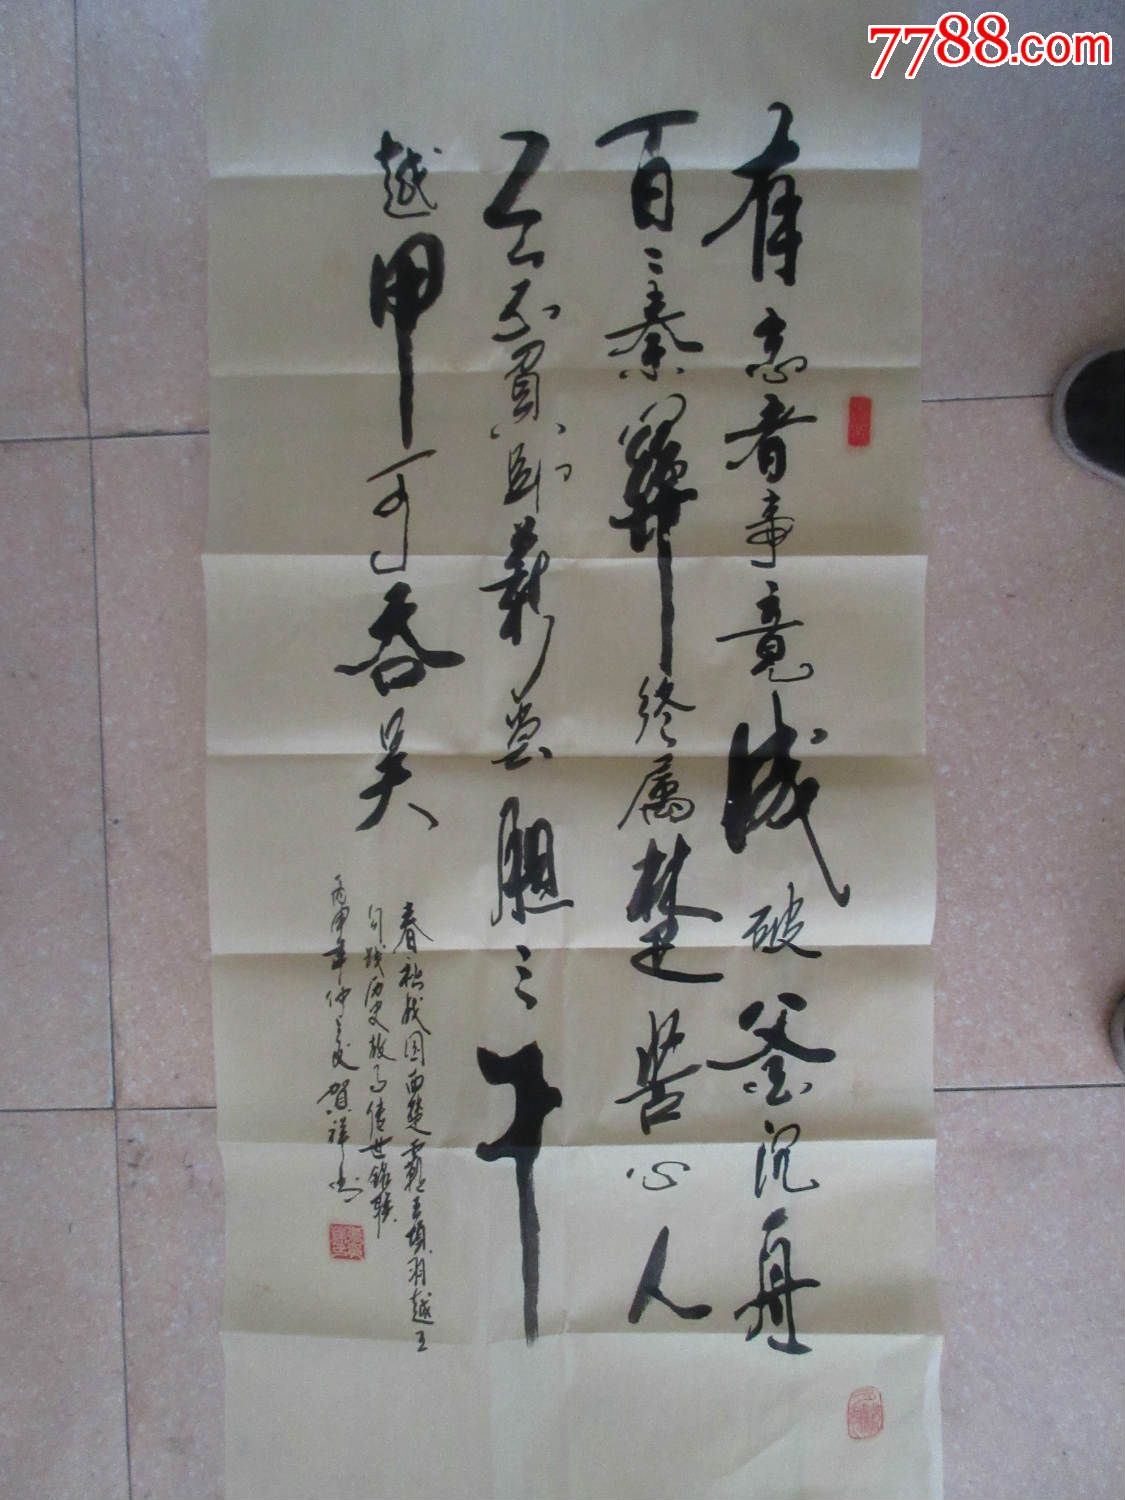 7788.com
有志者事竟成破釜沉舟
百二秦關终属楚苦心人
天不負卧薪尝胆三千
越甲可吞吴
春秋战国西楚霸王项羽越王
勾践历史故事传世铭联
丙申年仲夏贺祥书